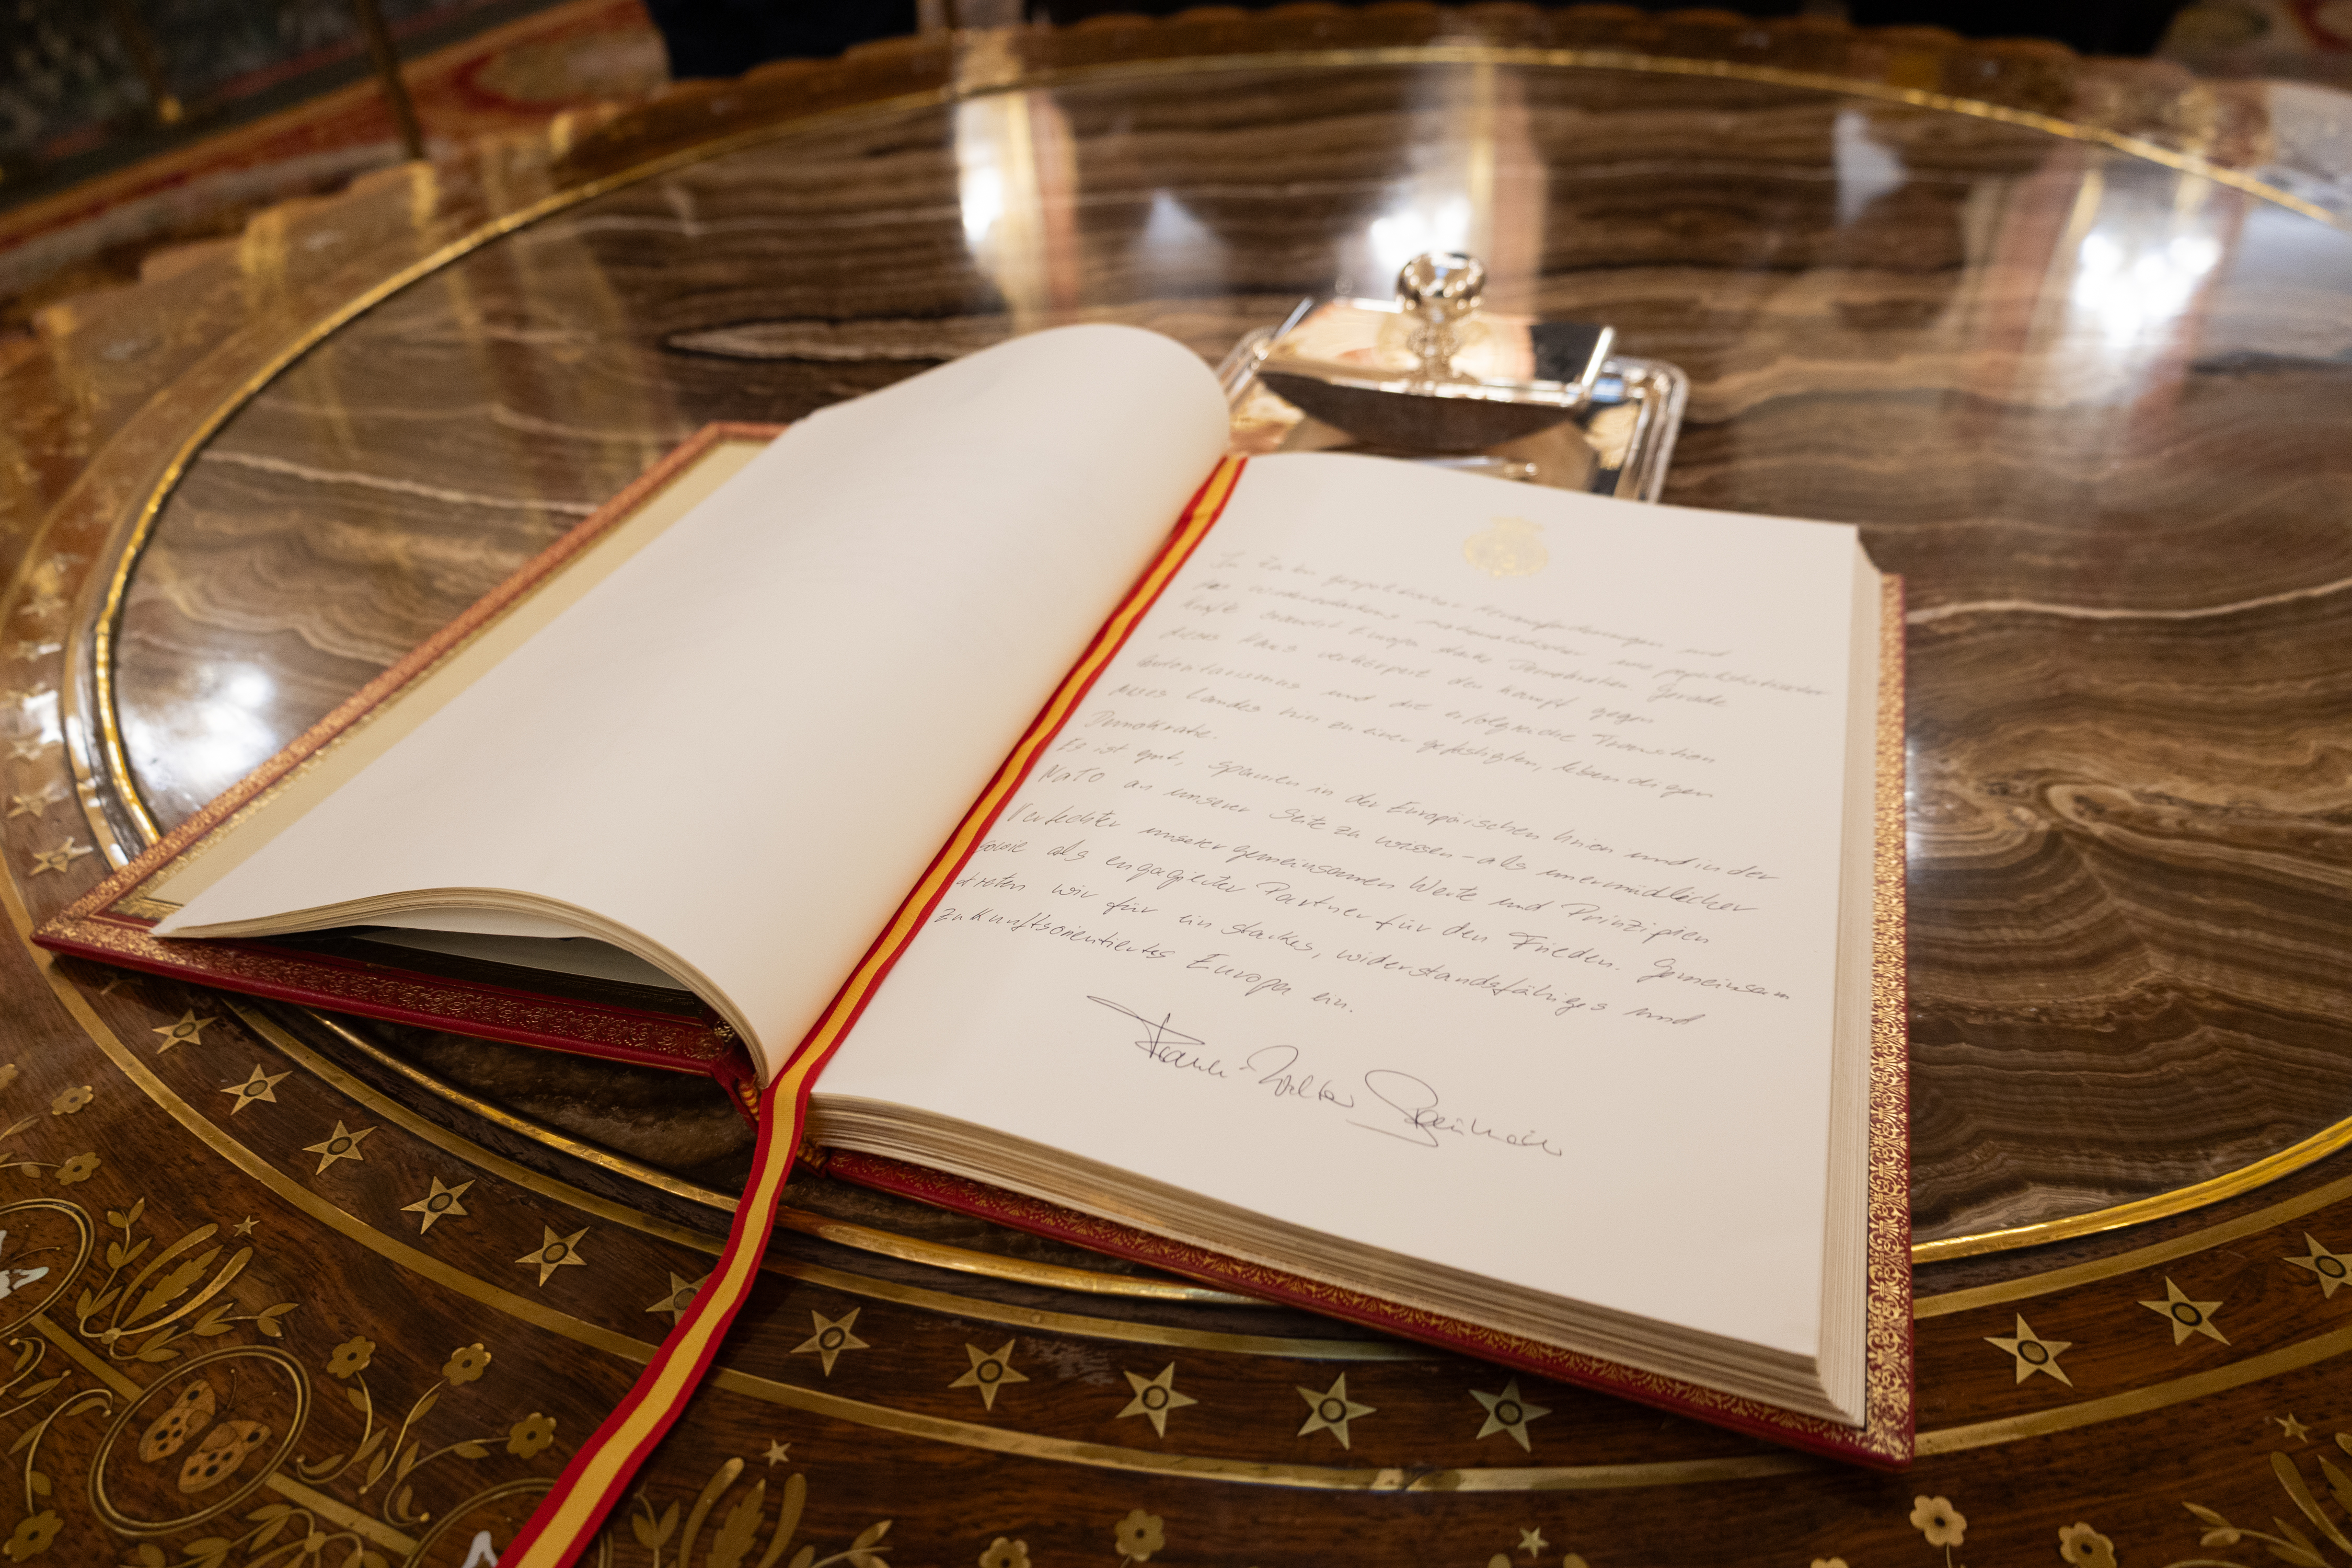 In Zeiten geopolitischer Herausforderungen und
des wiedererstarkens nationalistischer und populistischer
Kräfte braucht Europa starke Demokratien. Gerade
dieses Haus verkörpert den Kampf gegen
Autoritarismus und die erfolgreiche Transition
Ihres Landes hin zu einer gefestigten, lebendigen
Demokratie.
Es ist gut, Spanien in der Europäischen Union und in der
NATO an unserer Seite zu wissen - als unermüdlicher
Verfechter unserer gemeinsamen Werte und Prinzipien
sowie als engagierter Partner für den Frieden. Gemeinsam
treten wir für ein starkes, widerstandsfähiges und
zukunftsorientiertes Europa ein.
Frank-Walter Steinmeier